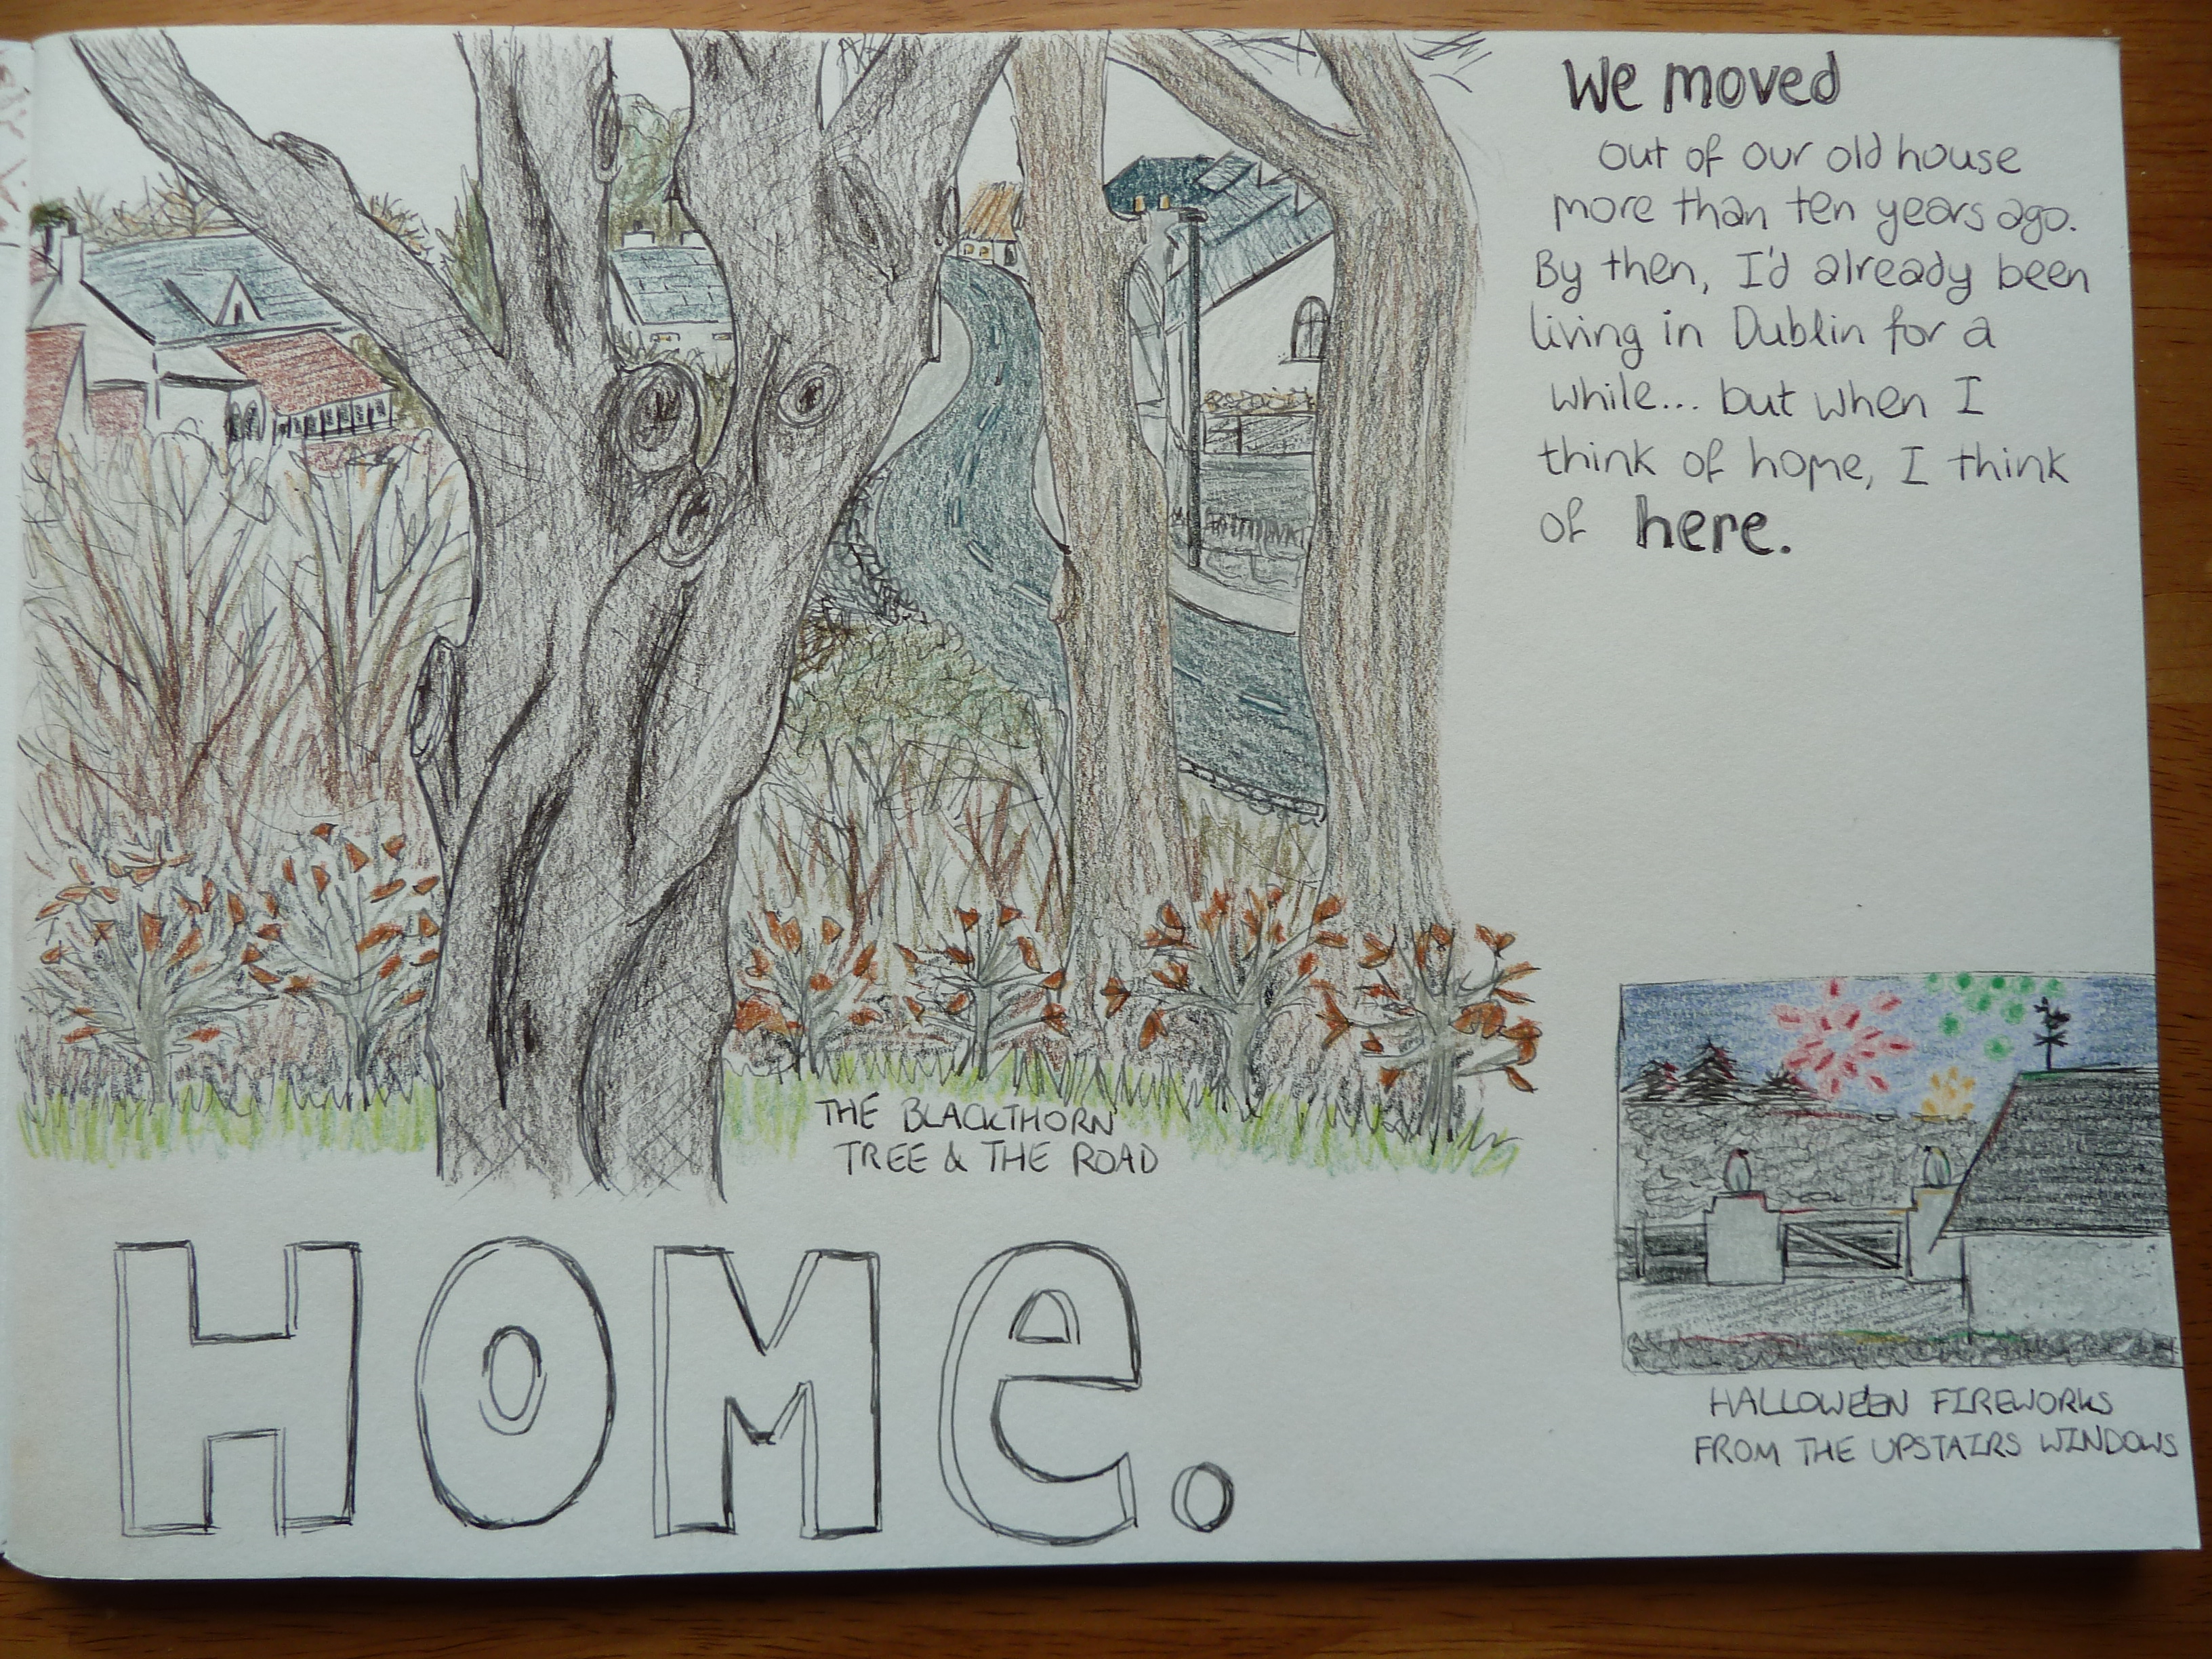 We moved
out of our old house
more than ten years ago.
By then, I'd already been
living in Dublin for a
while... but when I
think of home, I think
of here.
THE BLACKTHORN
TREE & THE ROAD
HOMe.
HALLOWEEN FIREWORKS
FROM THE UPSTAIRS WINDOWS